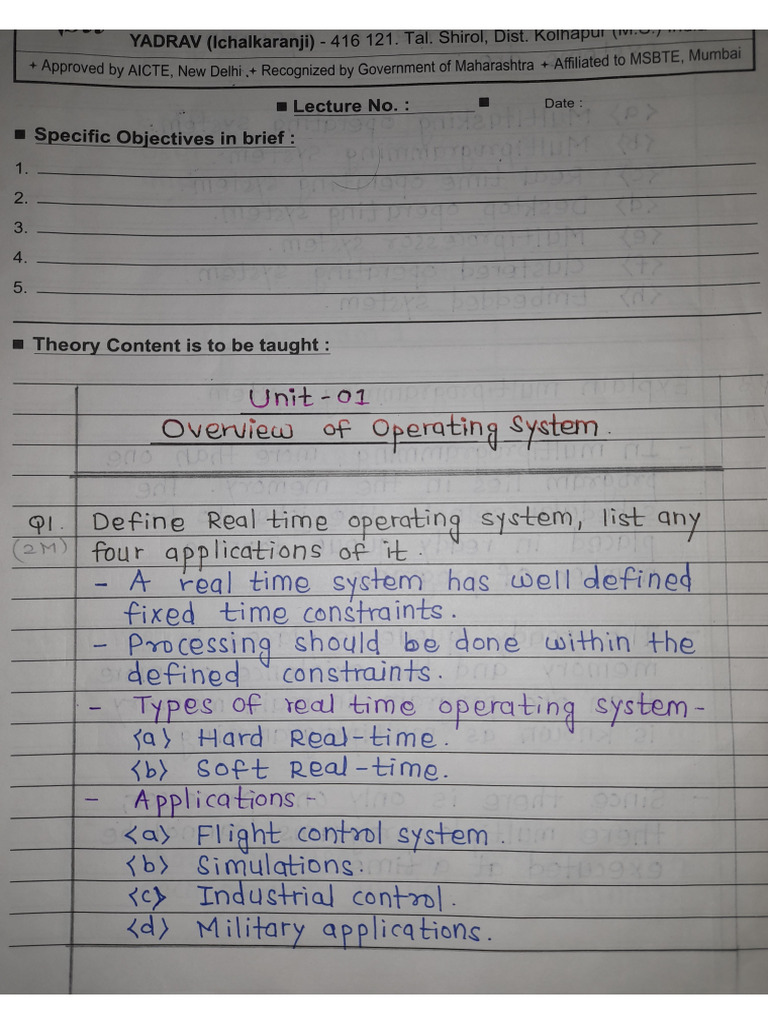 YADRAV (Ichalkaranji) - 416 121. Tal. Shirol, Dist. Kolhapur (M.S.) India
+ Approved by AICTE, New Delhi + Recognized by Government of Maharashtra + Affiliated to MSBTE, Mumbai
■ Lecture No. : ______ ■ Date :
■ Specific Objectives in brief :
1.
2.
3.
4.
5.
■ Theory Content is to be taught :
Unit - 01
Overview of Operating System.
Q1. Define Real time operating system, list any
(2M) four applications of it.
- A real time system has well defined
fixed time constraints.
- Processing should be done within the
defined constraints.
- Types of real time operating system -
<a> Hard Real-time.
<b> Soft Real-time.
- Applications -
<a> Flight control system.
<b> Simulations.
<c> Industrial control.
<d> Military applications.